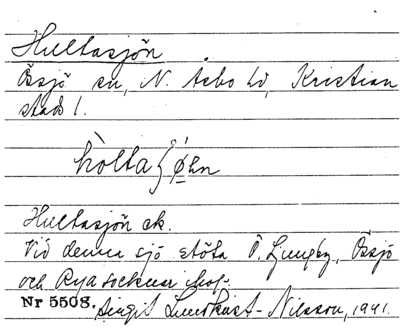 Hultasjön
Össjö sn, N. Åsbo hd, Kristian
stads l.
hòlta{ʃǿ̱hn
Hultasjön ek.
Vid denna sjö stöta Ö. Ljungby, Össjö
och Rya socknar ihop.
Nr 5508. Birgit Lundkvist-Nilsson, 1941.